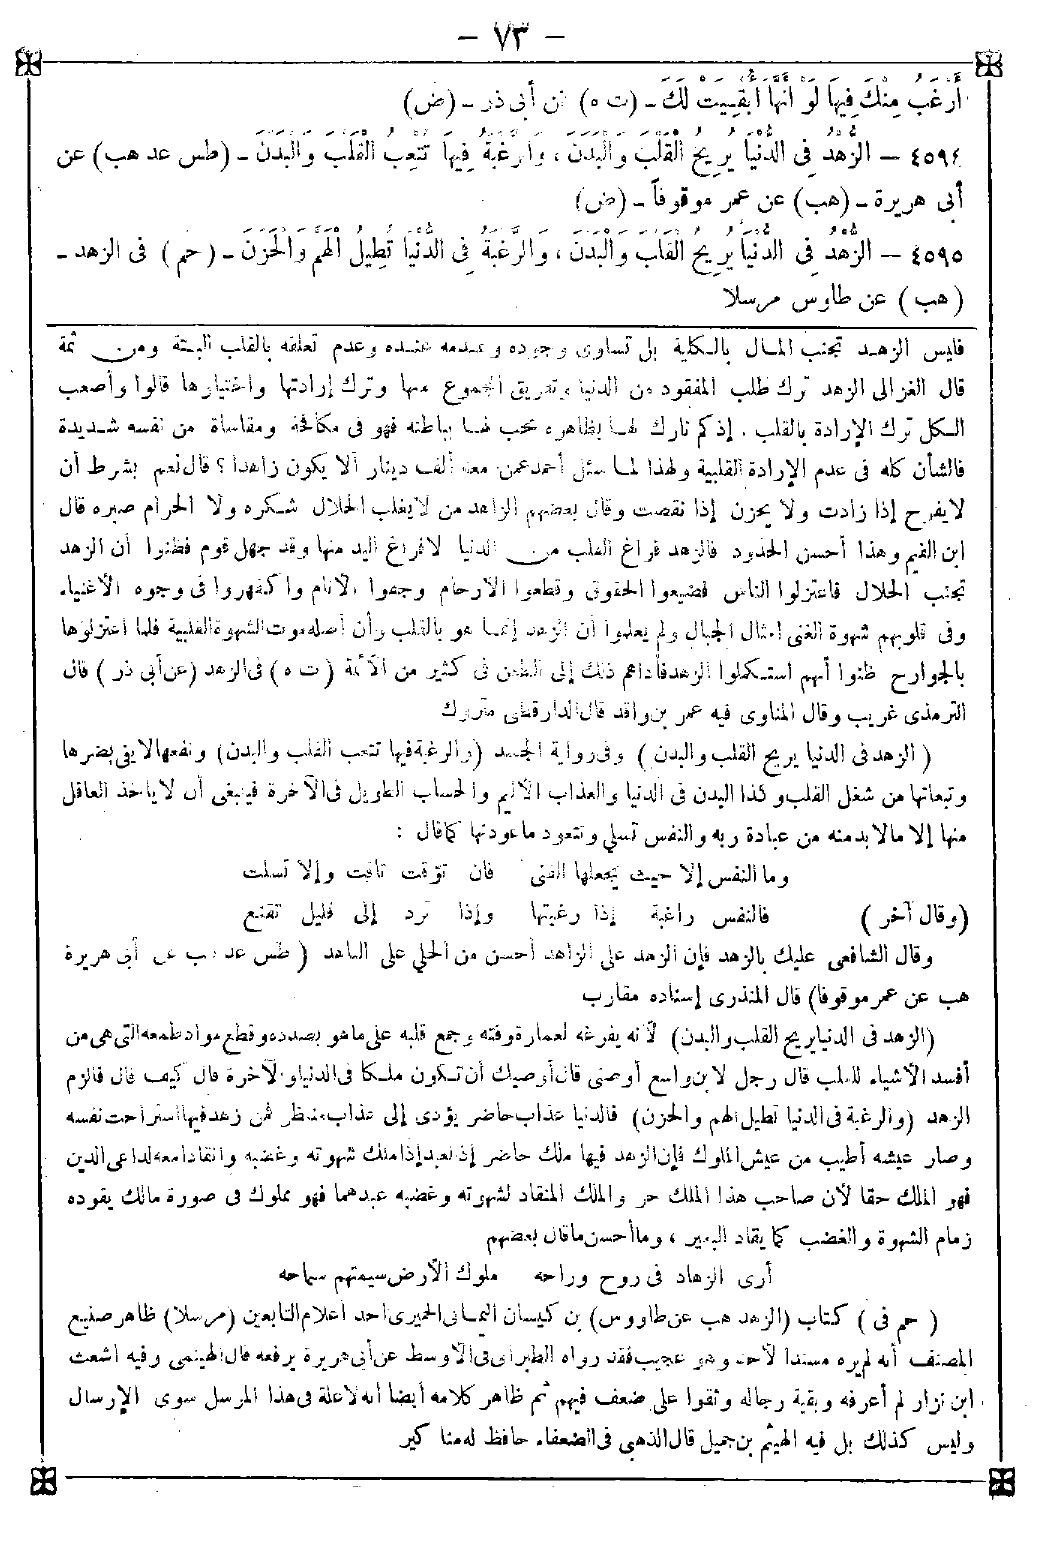 - ٧٣ -
أَرْغَبُ مِنْكَ فِيهَا لَوْ أَنَّهَا أُبْقِيَتْ لَكَ - (ت ه) عن أبى ذر - (ض)
٤٥٩٤ - الزُّهْدُ فِى الدُّنْيَا يُرِيحُ الْقَلْبَ وَالْبَدَنَ ، وَالرَّغْبَةُ فِيهَا تُتْعِبُ الْقَلْبَ وَالْبَدَنَ - (طس عد هب) عن
أبى هريرة - (هب) عن عمر موقوفاً - (ض)
٤٥٩٥ - الزُّهْدُ فِى الدُّنْيَا يُرِيحُ الْقَلْبَ وَالْبَدَنَ ، وَالرَّغْبَةُ فِى الدُّنْيَا تُطِيلُ الْهَمَّ وَالْحَزَنَ - (حم) فى الزهد -
(هب) عن طاوس مرسلا
فليس الزهد تجنب المال بالكلية بل تساوى وجوده وعدمه عنده وعدم تعلقه بالقلب البتة ومن ثمة
قال الغزالى الزهد ترك طلب المفقود من الدنيا وتفريق المجموع منها وترك إرادتها واختيارها قالوا وأصعب
الكل ترك الإرادة بالقلب . إذ كم تارك لها بظاهره محب لها بباطنه فهو فى مكافحة ومقاساة من نفسه شديدة
فالشأن كله فى عدم الإرادة القلبية ولهذا لما سئل أحمد عمن معه ألف دينار ألا يكون زاهدا ؟ قال نعم بشرط أن
لا يفرح إذا زادت ولا يحزن إذا نقصت وقال بعضهم الزاهد من لا يغلب الحلال شكره ولا الحرام صبره قال
ابن القيم وهذا أحسن الحدود فالزهد فراغ القلب من الدنيا لا فراغ اليد منها وقد جهل قوم فظنوا أن الزهد
تجنب الحلال فاعتزلوا الناس فضيعوا الحقوق وقطعوا الأرحام وجفوا الأنام واكفهروا فى وجوه الأغنياء
وفى قلوبهم شهوة الغنى أمثال الجبال ولم يعلموا أن الزهد إنما هو بالقلب وأن أصله موت الشهوة القلبية فلما اعتزلوها
بالجوارح ظنوا أنهم استكملوا الزهد فأداهم ذلك إلى الطعن فى كثير من الأئمة (ت ه) فى الزهد (عن أبى ذر) قال
الترمذى غريب وقال المناوى فيه عمر بن واقد قال الدارقطنى متروك
(الزهد فى الدنيا يريح القلب والبدن) وفى رواية الجسد (والرغبة فيها تتعب القلب والبدن) ونفعها لا يفى بضرها
وتبعاتها من شغل القلب وكذا البدن فى الدنيا والعذاب الأليم والحساب الطويل فى الآخرة فينبغى أن لا يأخذ العاقل
منها إلا ما لا بد منه من عبادة ربه والنفس تسلي وتتعود ما عودتها كما قال :
وما النفس إلا حيث يجعلها الفتى فان توقت تاقت وإلا تسلت
(وقال آخر) فالنفس راغبة إذا رغبتها وإذا ترد إلى قليل تقنع
وقال الشافعى عليك بالزهد فإن الزهد على الزاهد أحسن من الحلي على الناهد (طس عد هب عن أبى هريرة
هب عن عمر موقوفا) قال المنذرى إسناده مقارب
(الزهد فى الدنيا يريح القلب والبدن) لأنه يفرغه لعمارة وقته وجمع قلبه على ما هو بصدده وقطع مواد طمعه التى هى من
أفسد الأشياء للقلب قال رجل لابن واسع أوصنى قال أوصيك أن تكون ملكا فى الدنيا والآخرة قال كيف قال فالزم
الزهد (والرغبة فى الدنيا تطيل الهم والحزن) فالدنيا عذاب حاضر يؤدى إلى عذاب منتظر فمن زهد فيها استراحت نفسه
وصار عيشه أطيب من عيش الملوك فإن الزهد فيها ملك حاضر إذ العبد إذا ملك شهوته وغضبه وانقادا معه لداعى الدين
فهو الملك حقا لأن صاحب هذا الملك حر والملك المنقاد لشهوته وغضبه عبدهما فهو مملوك فى صورة مالك يقوده
زمام الشهوة والغضب كما يقاد البعير ، وما أحسن ما قال بعضهم
أرى الزهاد فى روح وراحه ملوك الأرض سيمتهم سماحه
(حم فى) كتاب (الزهد هب عن طاووس) بن كيسان اليمانى الحميرى أحد أعلام التابعين (مرسلا) ظاهر صنيع
المصنف أنه لم يره مسندا لأحد وهو عجيب فقد رواه الطبرانى فى الأوسط عن أبى هريرة يرفعه قال الهيثمى وفيه أشعث
ابن نزار لم أعرفه وبقية رجاله وثقوا على ضعف فيهم ثم ظاهر كلامه أيضا أنه لا علة فى هذا المرسل سوى الإرسال
وليس كذلك بل فيه الهيثم بن جميل قال الذهبي فى الضعفاء حافظ له مناكير